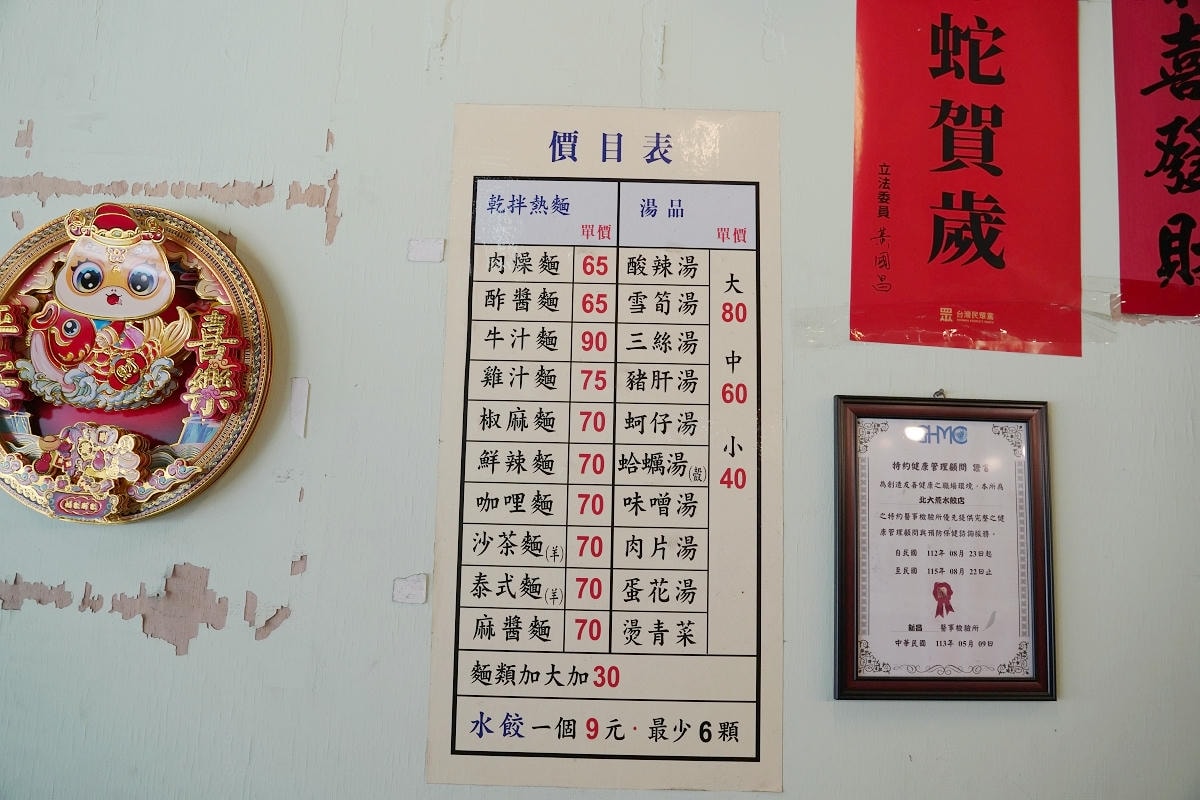 價目表
乾拌熱麵 單價
肉燥麵 65
酢醬麵 65
牛汁麵 90
雞汁麵 75
椒麻麵 70
鮮辣麵 70
咖哩麵 70
沙茶麵(羊) 70
泰式麵(羊) 70
麻醬麵 70
湯品 單價
酸辣湯
雪筍湯
三絲湯
豬肝湯
蚵仔湯
蛤蠣湯(殼)
味噌湯
肉片湯
蛋花湯
燙青菜
大
80
中
60
小
40
麵類加大加30
水餃一個9元·最少6顆
喜樂
蛇賀歲
立法委員 黃國昌
眾 台灣民眾黨
喜發財
特約健康管理顧問 證書
為創造友善健康之職場環境，本所為
北大荒水餃店
之特約醫事檢驗所優先提供完整之健
康管理顧問與預防保健諮詢服務。
自民國 112年 08月 23日起
至民國 115年 08月 22日止
新昌 醫事檢驗所
中華民國 113年 05月 09日